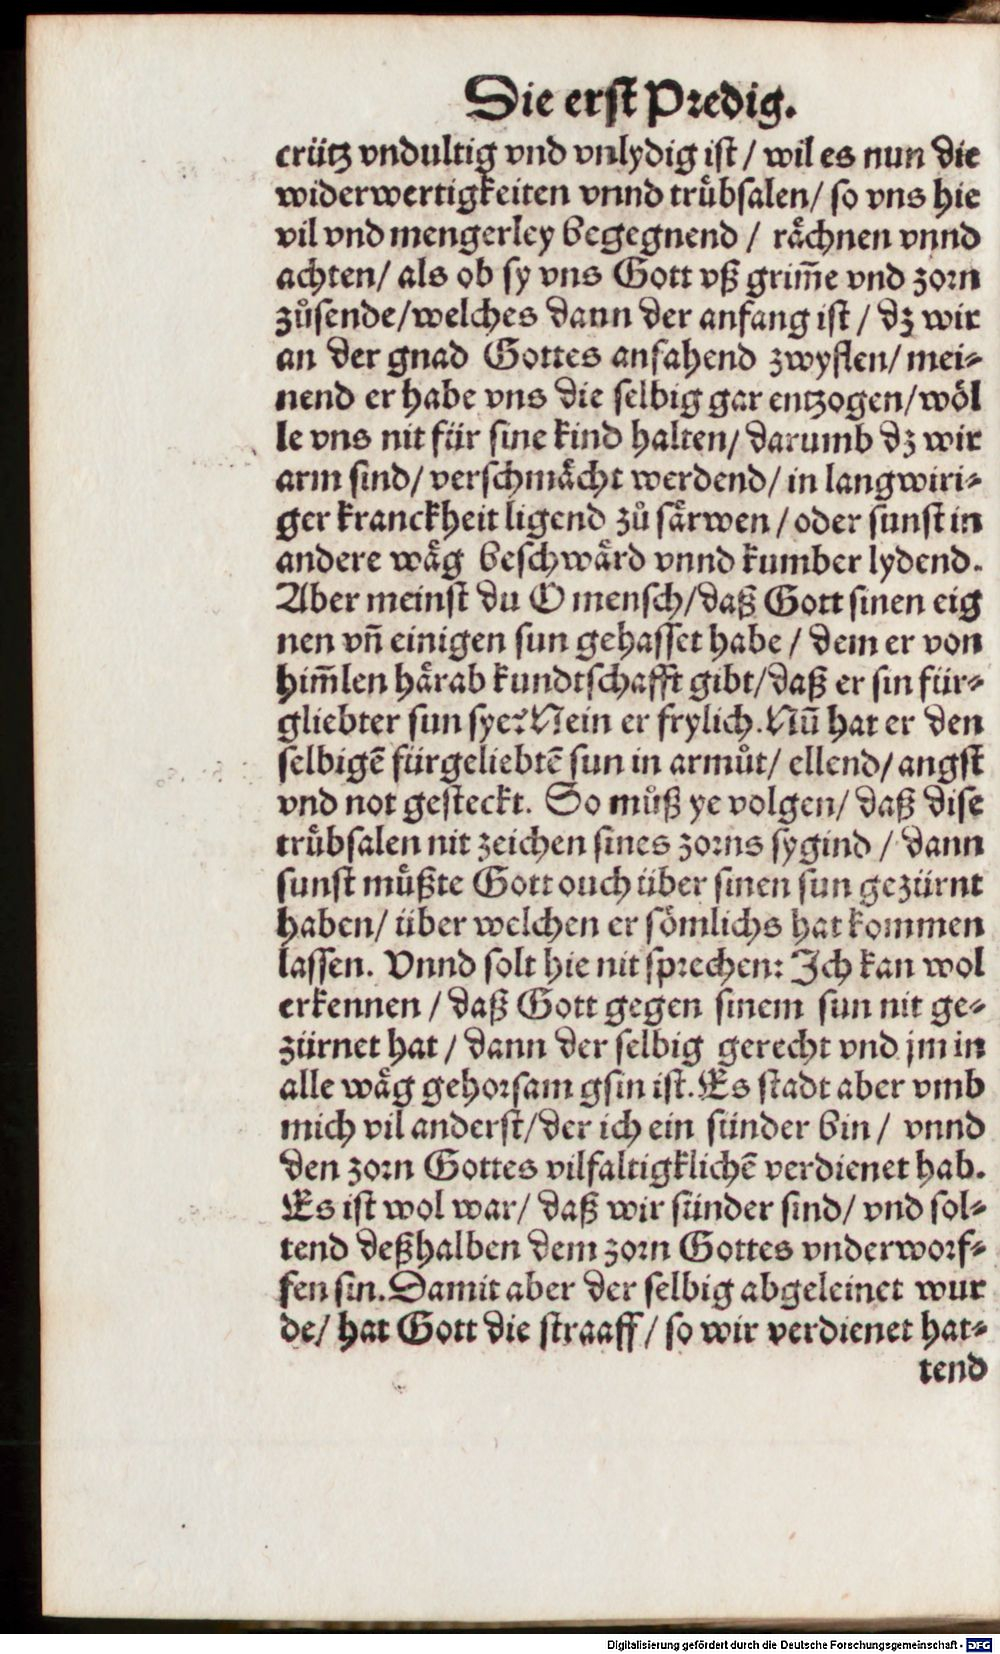 Die erst Predig.
crütz vndultig vnd vnlydig ist / wil es nun die
widerwertigkeiten vnnd trůbsalen/ so vns hie
vil vnd mengerley begegnend / råchnen vnnd
achten/ als ob sy vns Gott vß grim̃e vnd zorn
zůsende/welches dann der anfang ist / dz wir
an der gnad Gottes anfahend zwyflen/ mei-
nend er habe vns die selbig gar entzogen/wöl
le vns nit für sine kind halten/ darumb dz wir
arm sind/ verschmåcht werdend/ in langwiri-
ger kranckheit ligend zů sårwen / oder sunst in
andere wåg beschwård vnnd kumber lydend.
Aber meinst du O mensch/daß Gott sinen eig
nen vñ einigen sun gehasset habe / dem er von
him̃len hårab kundtschafft gibt/daß er sin für-
gliebter sun sye? Nein er frylich. Nũ hat er den
selbigẽ fürgeliebtẽ sun in armůt/ ellend/ angst
vnd not gesteckt. So můß ye volgen/ daß dise
trůbsalen nit zeichen sines zorns sygind / dann
sunst müßte Gott ouch über sinen sun gezürnt
haben/ über welchen er sömlichs hat kommen
lassen. Vnnd solt hie nit sprechen: Ich kan wol
erkennen / daß Gott gegen sinem sun nit ge-
zürnet hat / dann der selbig gerecht vnd jm in
alle wåg gehorsam gsin ist. Es stadt aber vmb
mich vil anderst/der ich ein sünder bin / vnnd
den zorn Gottes vilfaltigklichẽ verdienet hab.
Es ist wol war/ daß wir sünder sind/ vnd sol-
tend deßhalben dem zorn Gottes vnderworf-
fen sin. Damit aber der selbig abgeleinet wur
de/ hat Gott die straaff / so wir verdienet hat-
tend
Digitalisierung gefördert durch die Deutsche Forschungsgemeinschaft - DFG